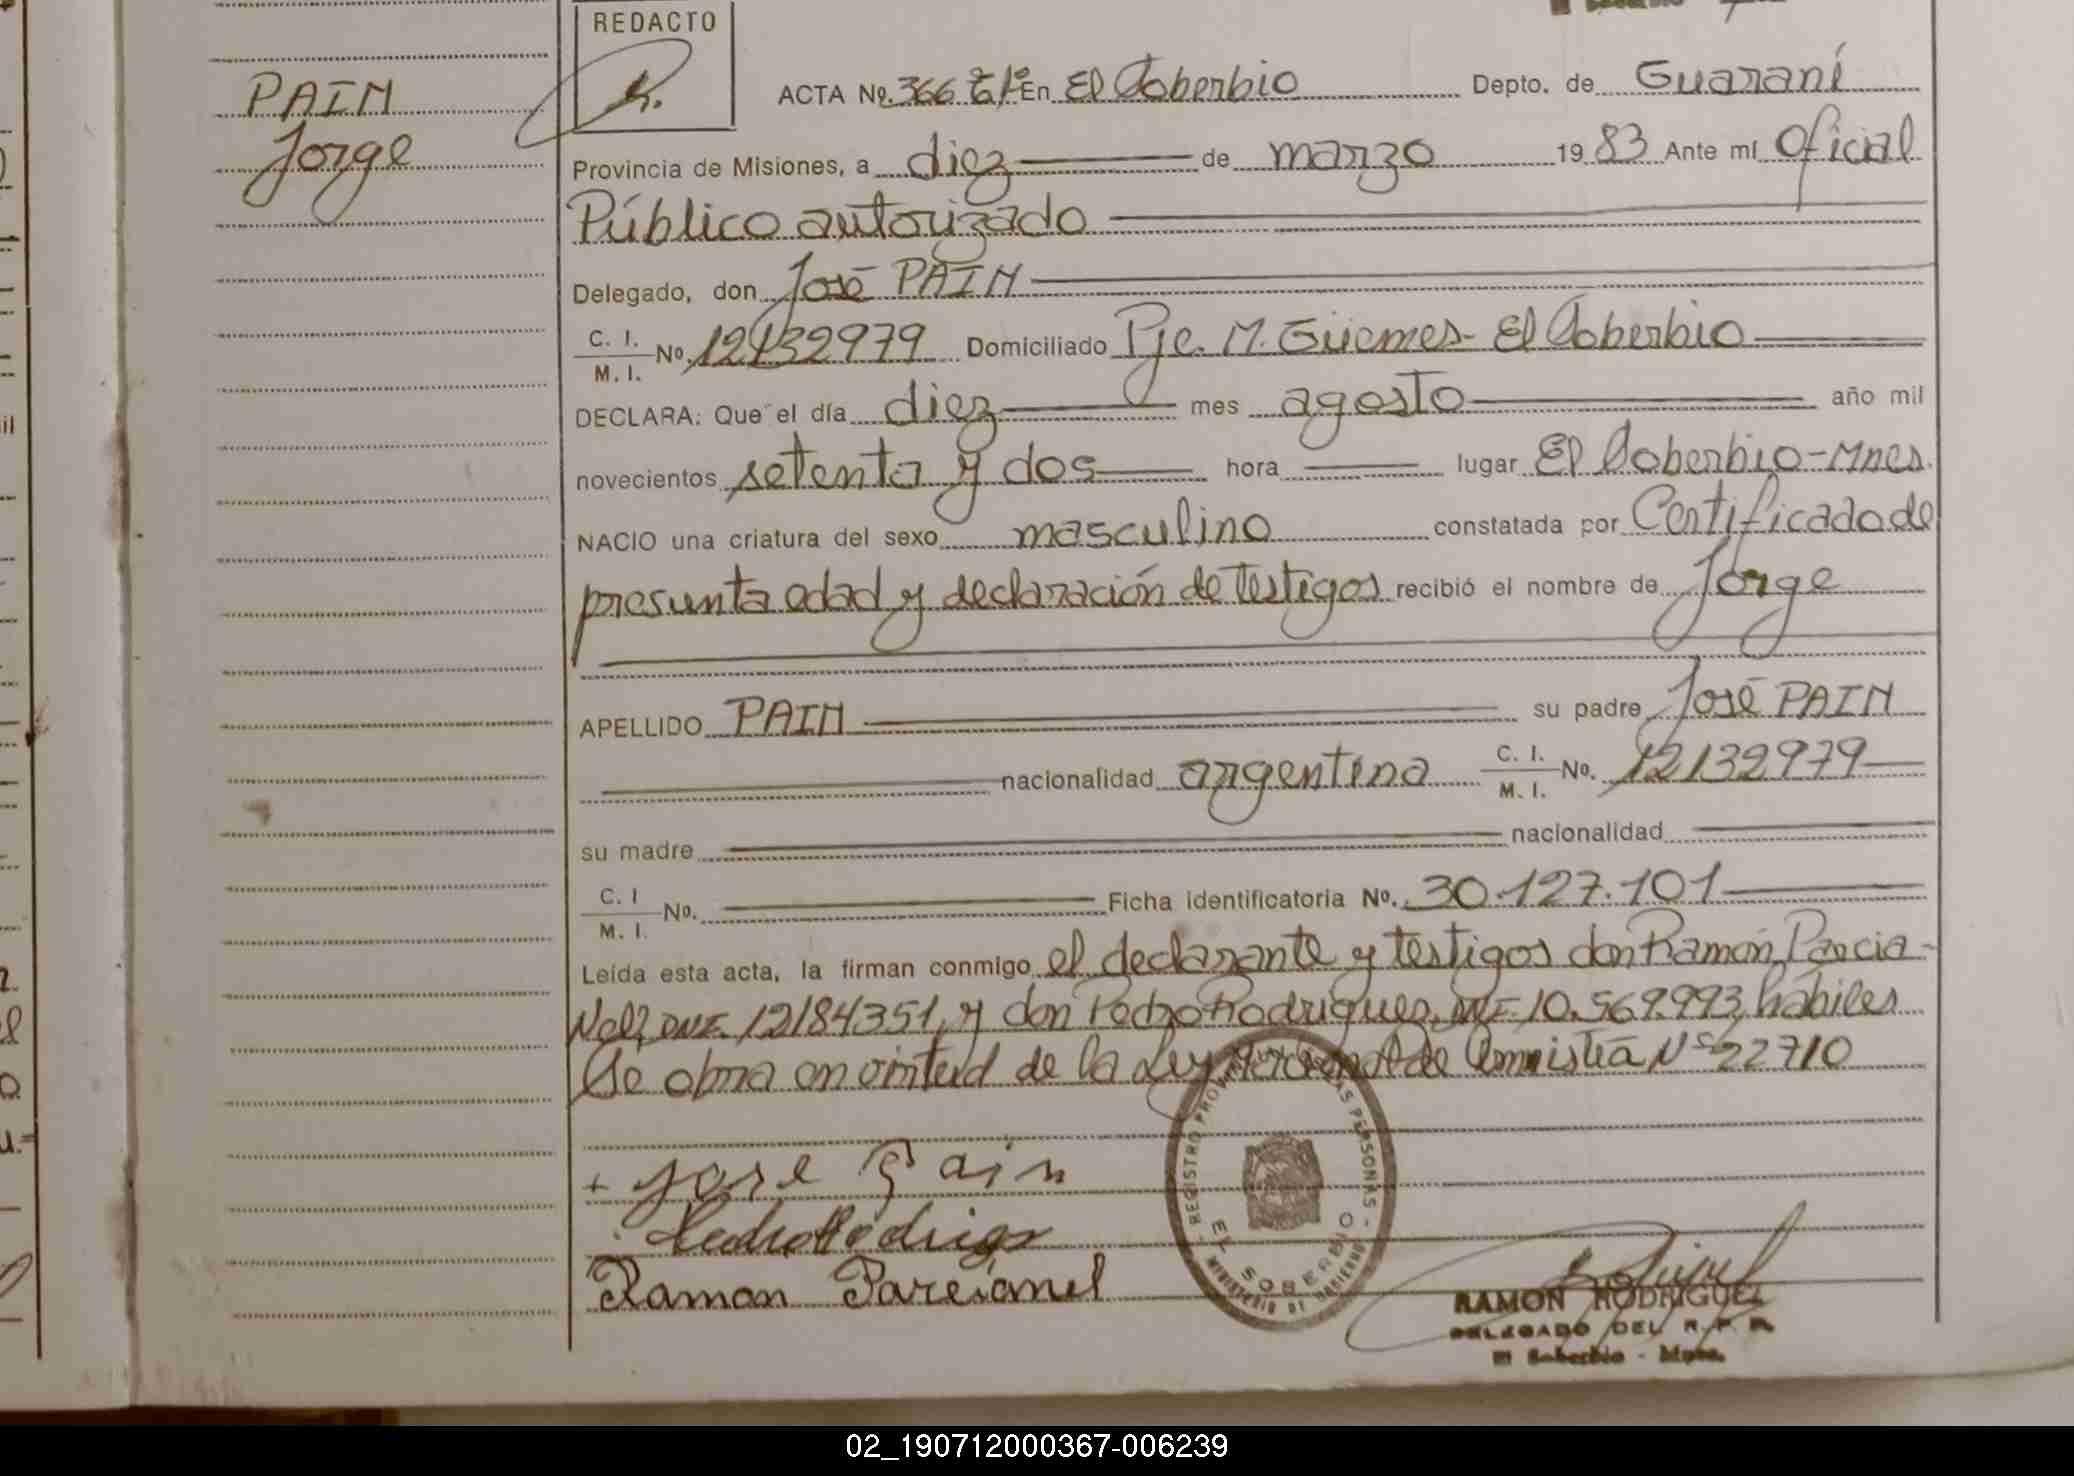 REDACTO
PAIM
Jorge
ACTA No. 366 Tº 1º En El Soberbio Depto. de Guaraní
Provincia de Misiones, a diez de marzo 1983 Ante mí Oficial
Público autorizado
Delegado, don José PAIM
C. I. M. I. No. 12132979 Domiciliado Pje. M. Güemes - El Soberbio
DECLARA: Que el día diez mes agosto año mil
novecientos setenta y dos hora lugar El Soberbio - Mnes.
NACIO una criatura del sexo masculino constatada por Certificado de
presunta edad y declaración de testigos recibió el nombre de Jorge
APELLIDO PAIM su padre José PAIM
nacionalidad argentina C. I. M. I. No. 12132979
su madre nacionalidad
C. I M. I. No. Ficha identificatoria No. 30.127.101
Leída esta acta, la firman conmigo el declarante y testigos don Ramón Parcia-
nel, DNI. 12184351, y don Pedro Rodrigues, DNI. 10.569.993, hábiles
Se obra en virtud de la Ley Nacional de Amnistía Nº 22710
+ José Pain
Pedro Rodrigs
Ramon Parcianel
REGISTRO PROVINCIAL DE LAS PERSONAS
EL SOBERBIO
MINISTERIO DE GOBIERNO
RAMON RODRIGUEZ
DELEGADO DEL R. P. P.
El Soberbio - Mnes.
02_190712000367-006239